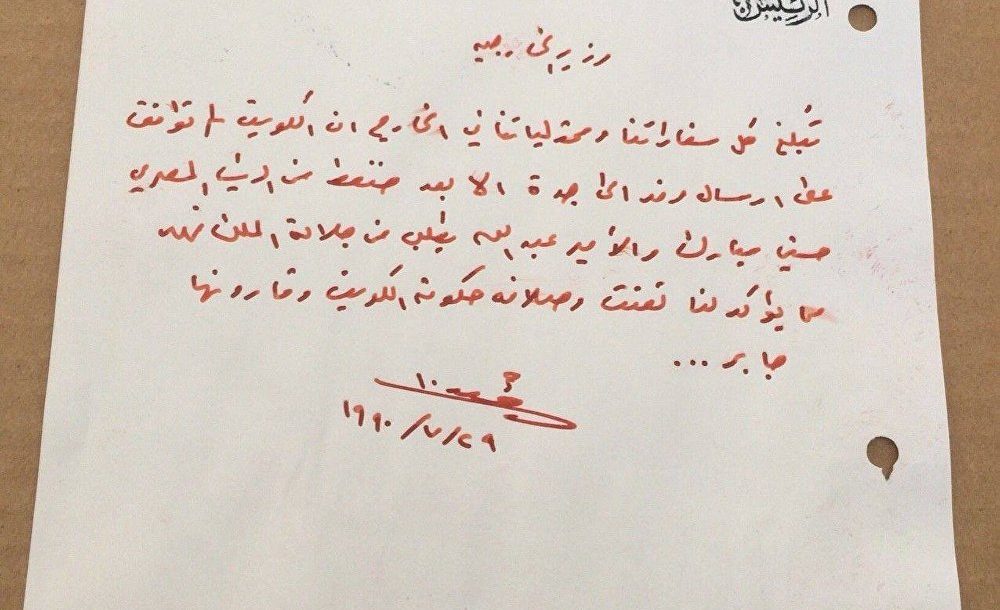 الرئيس
وزير الخارجيه
تُبلغ كل سفاراتنا وممثلياتنا في الخارج ان الكويت لم توافق
على ارسال وفد الى جدة الا بعد ضغط من الرئيس المصري
حسني مبارك والأمير عبدالله بطلب من جلالة الملك فهد
مما يؤكد لنا تعنت وصلافه حكومة الكويت وقارونها
جابر ...
١٩٩٠/٧/٢٩